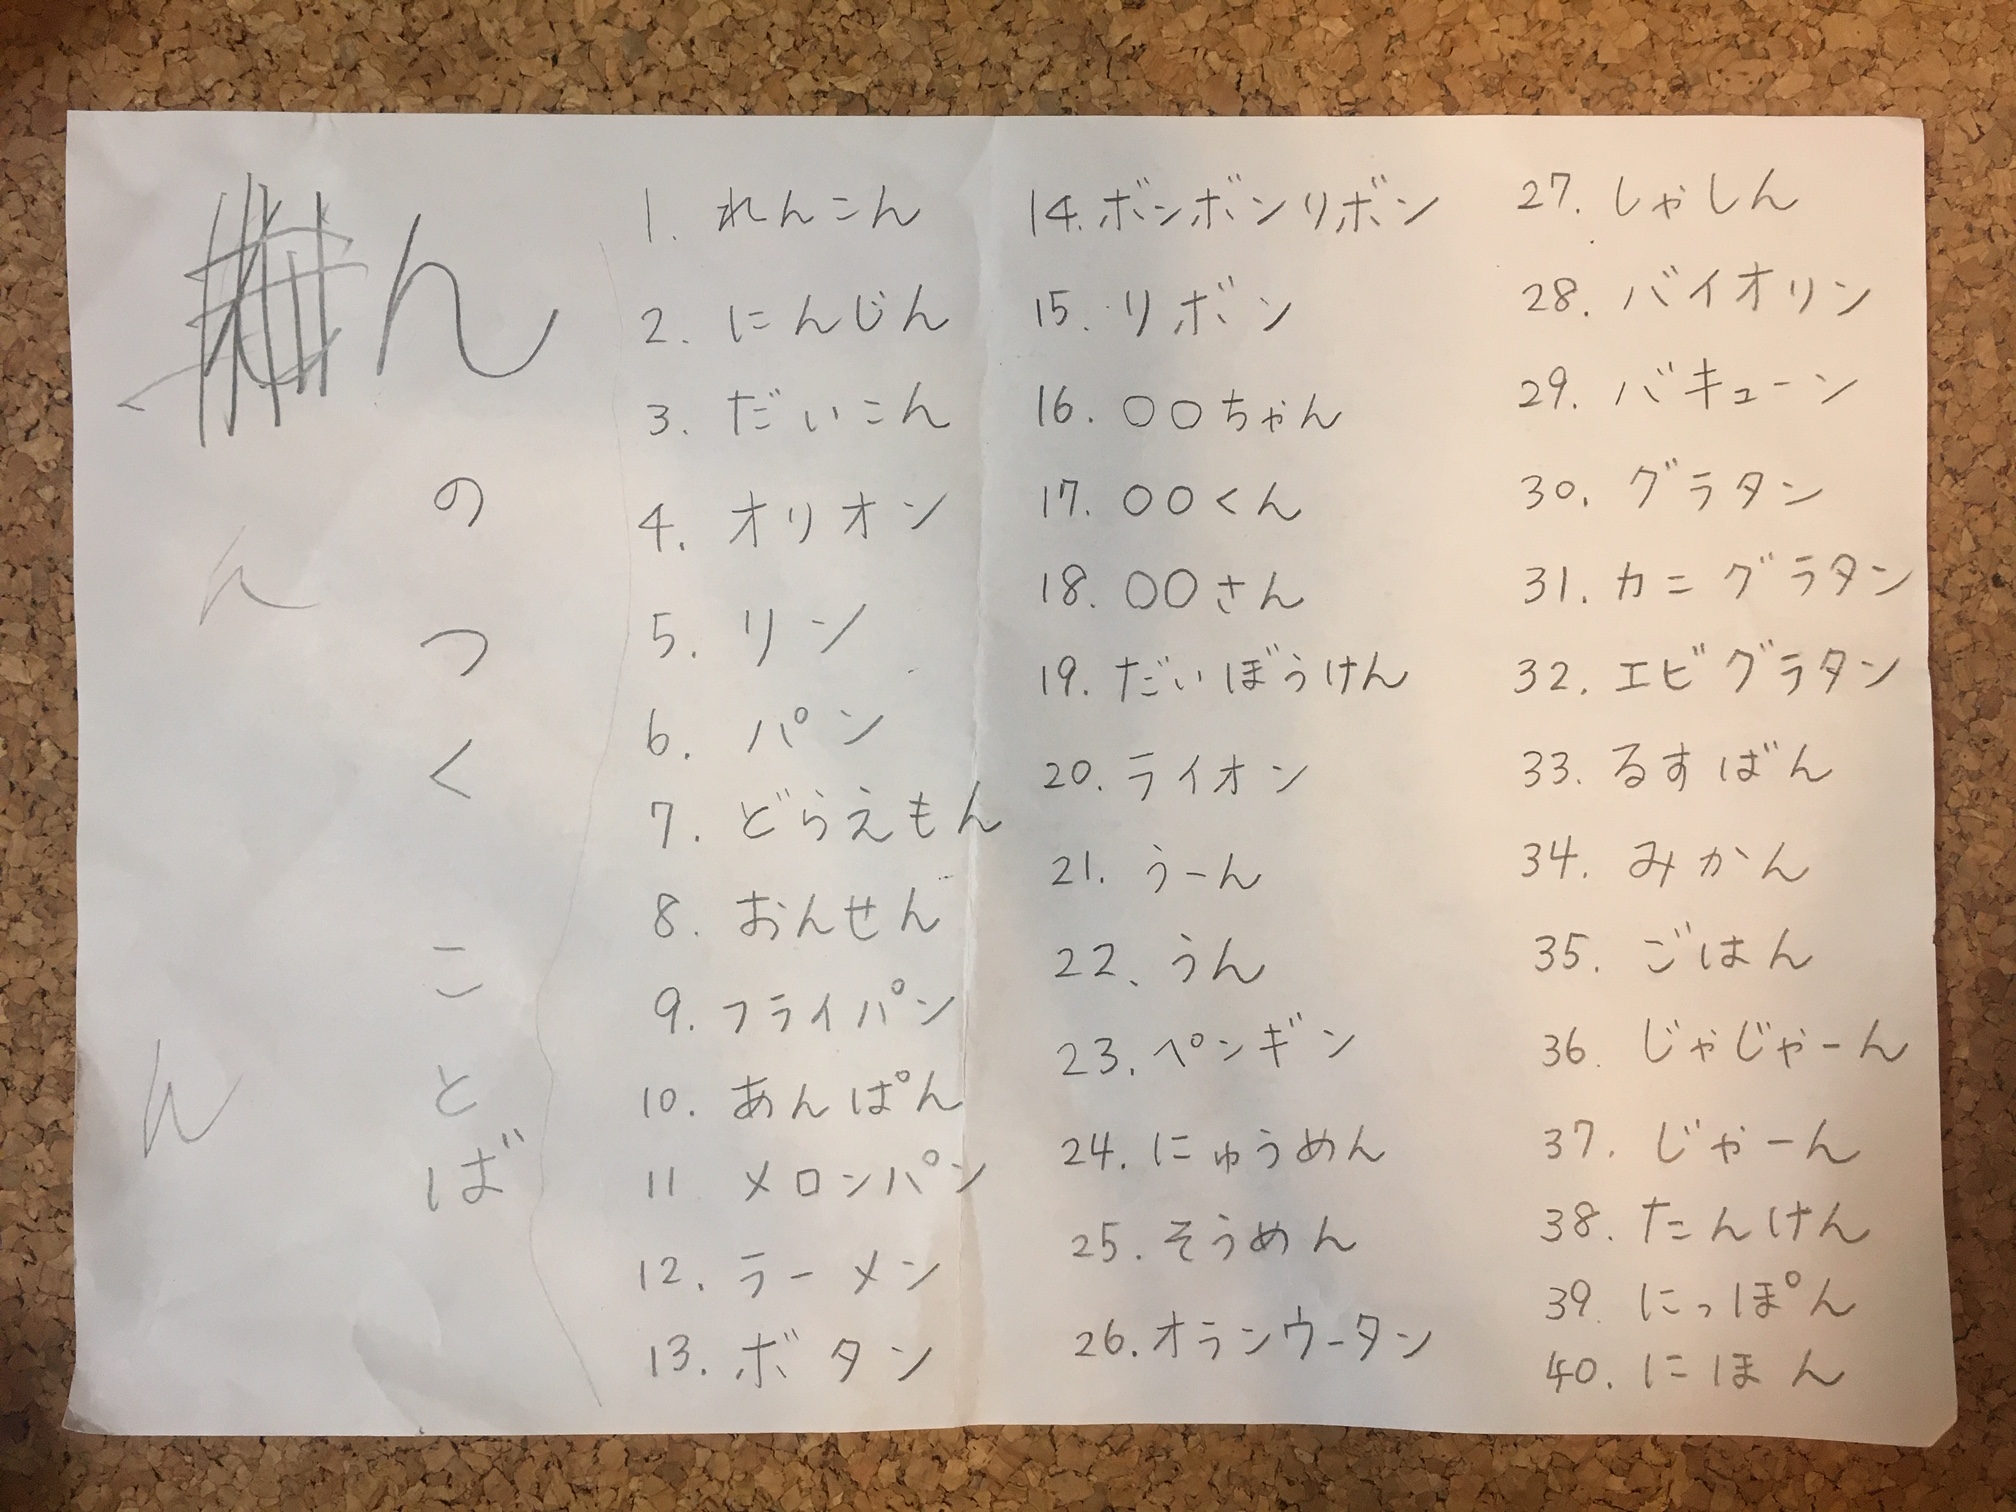 ん
の
つ
く
こ
と
ば
ん
ん
1. れんこん
2. にんじん
3. だいこん
4. オリオン
5. リン
6. パン
7. どらえもん
8. おんせん
9. フライパン
10. あんぱん
11 メロンパン
12. ラーメン
13. ボタン
14. ボンボンリボン
15. リボン
16. 〇〇ちゃん
17. 〇〇くん
18. 〇〇さん
19. だいぼうけん
20. ライオン
21. うーん
22. うん
23. ペンギン
24. にゅうめん
25. そうめん
26. オランウータン
27. しゃしん
28. バイオリン
29. バキューン
30. グラタン
31. カニグラタン
32. エビグラタン
33. るすばん
34. みかん
35. ごはん
36. じゃじゃーん
37. じゃーん
38. たんけん
39. にっぽん
40. にほん